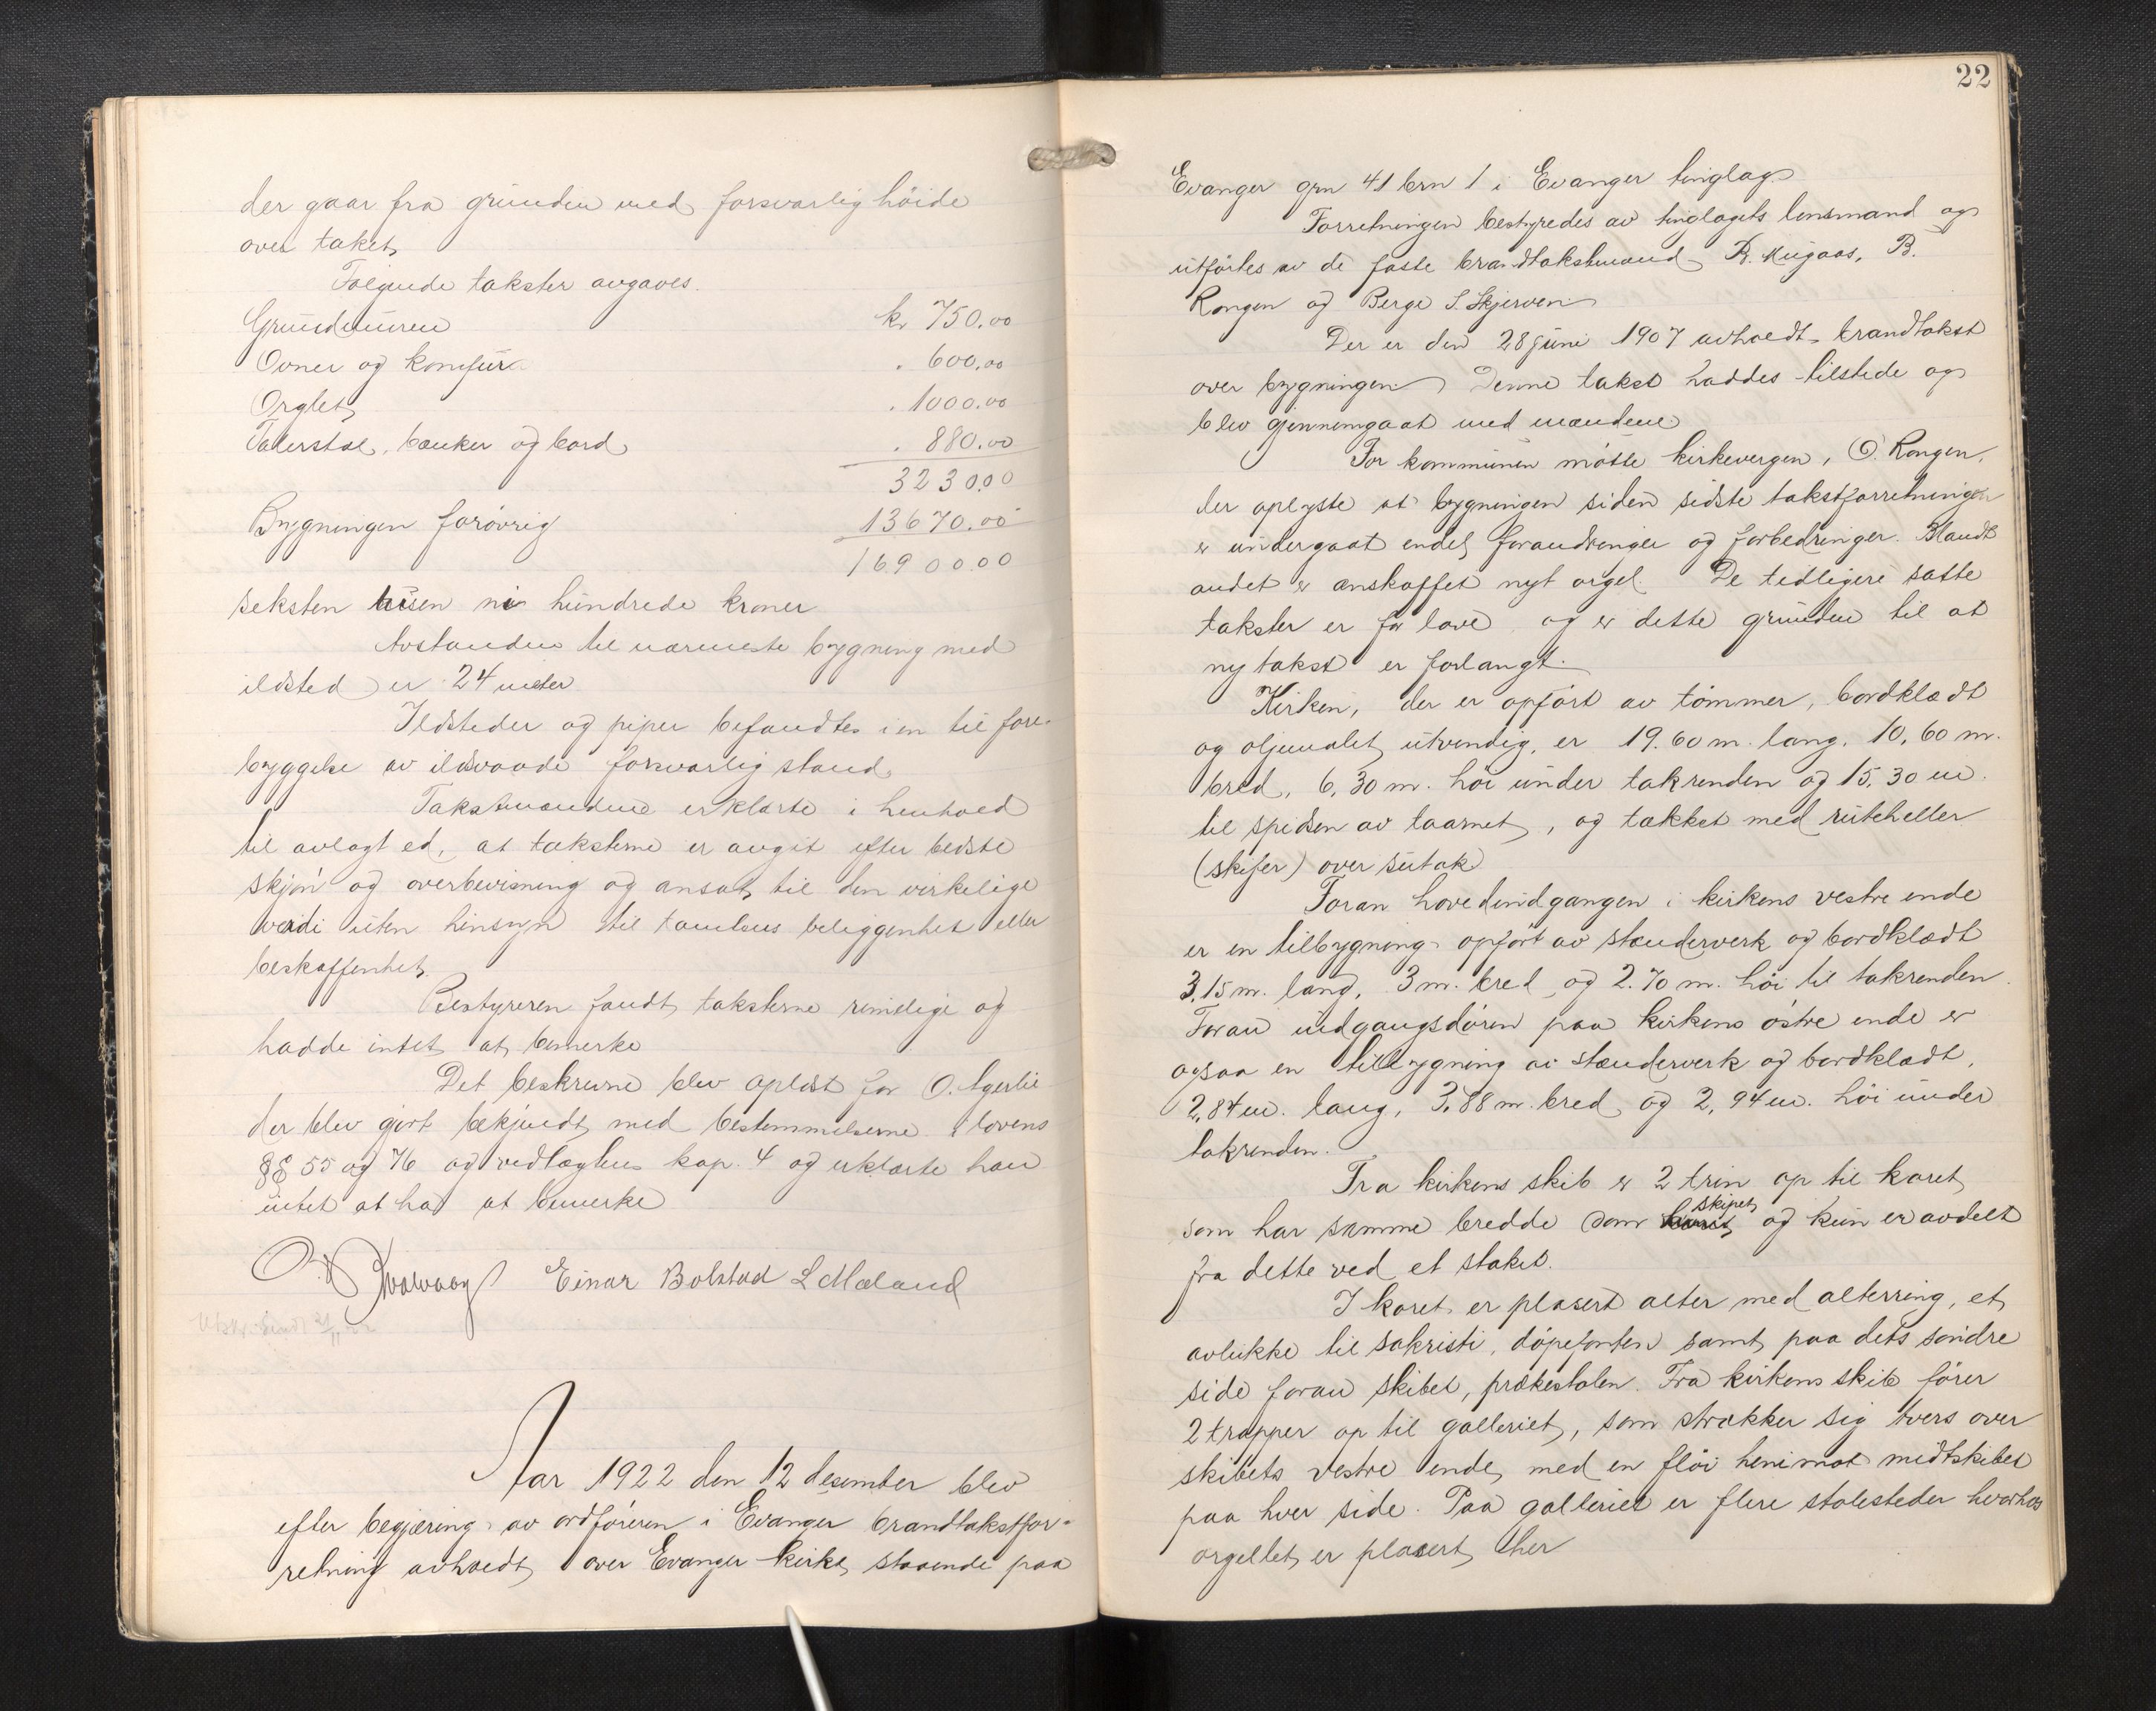 der gaar fra grunden med forsvarlig höide
over taket
Følgende takster avgaves.
Grundmuren kr 750.00
Ovner og komfur " 600.00
Orglet " 1000.00
Talerstol, bænker og bord " 880.00
3230.00
Bygningen forövrig 13670.00
16900.00
seksten tusen ni hundrede kroner
Avstanden til nærmeste bygning med
ildsted er 24 meter
Ildsteder og piper befandtes i en til fore-
byggelse av ildsvaade forsvarlig stand.
Takstmændene erklærte i henhold
til avlagt ed, at taksterne er avgit efter bedste
skjøn og overbevisning og ansat til den virkelige
værdi uten hensyn til tomtens beliggenhet eller
beskaffenhet.
Bestyreren fandt taksterne rimelige og
hadde intet at bemerke
Det beskrevne blev oplæst for O.
der blev gjort bekjendt med bestemmelserne i lovens
§§ 55 og 76 og vedtægtens kap. 4 og erklærte han
intet at ha at bemerke
Einar Bolstad L Mæland
Aar 1922 den 12 desember blev
efter begjæring av ordføreren i Evanger brandtakstfor-
retning avholdt over Evanger kirke staaende paa
22
Evanger grn 41 brn 1 i Evanger tinglag
Forretningen bestyredes av tinglagets lensmand og
utførtes av de faste brandtakstmænd B. B.
Rongen og Berge S. Skjerven
Der er den 28 juni 1907 avholdt brandtakst
over bygningen. Denne takst haddes tilstede og
blev gjennemgaat med mændene
For kommunen møtte kirkevergen, O. Rongen,
der oplyste at bygningen siden sidste takstforretningen
er undergaat endel forandringer og forbedringer. Blandt
andet er anskaffet nyt orgel. De tidligere satte
takster er for lave og er dette grunden til at
ny takst er forlangt.
Kirken, der er opført av tömmer, bordklædt
og oljemalet utvendig, er 19.60 m. lang, 10,60 m.
bred, 6,30 m. höi under takrenden og 15,30 m.
til spidsen av taarnet, og tækket med ruteheller
(skifer) over sutak
Foran hovedindgangen i kirkens vestre ende
er en tilbygning opført av stænderverk og bordklædt
3,15 m. lang, 3 m. bred og 2.70 m. höi til takrenden.
Foran indgangsdören paa kirkens östre ende er
ogsaa en tilbygning av stænderverk og bordklædt,
2,84 m. lang, 3,88 m. bred og 2,94 m. höi under
takrenden.
Fra kirkens skib er 2 trin op til koret
som har samme bredde som koret skipet og kun er avdelt
fra dette ved et stakit.
I koret er plasert alter med alterring, et
avlukke til sakristi, döpefonten samt paa dets söndre
side foran skibet, prækestolen. Fra kirkens skib förer
2 trapper op til galleriet, som strækker sig tvers over
skibets vestre ende med en flöi henimot midtskibet
paa hver side. Paa galleriet er flere stolesteder hvorhos
orgellet er plasert her